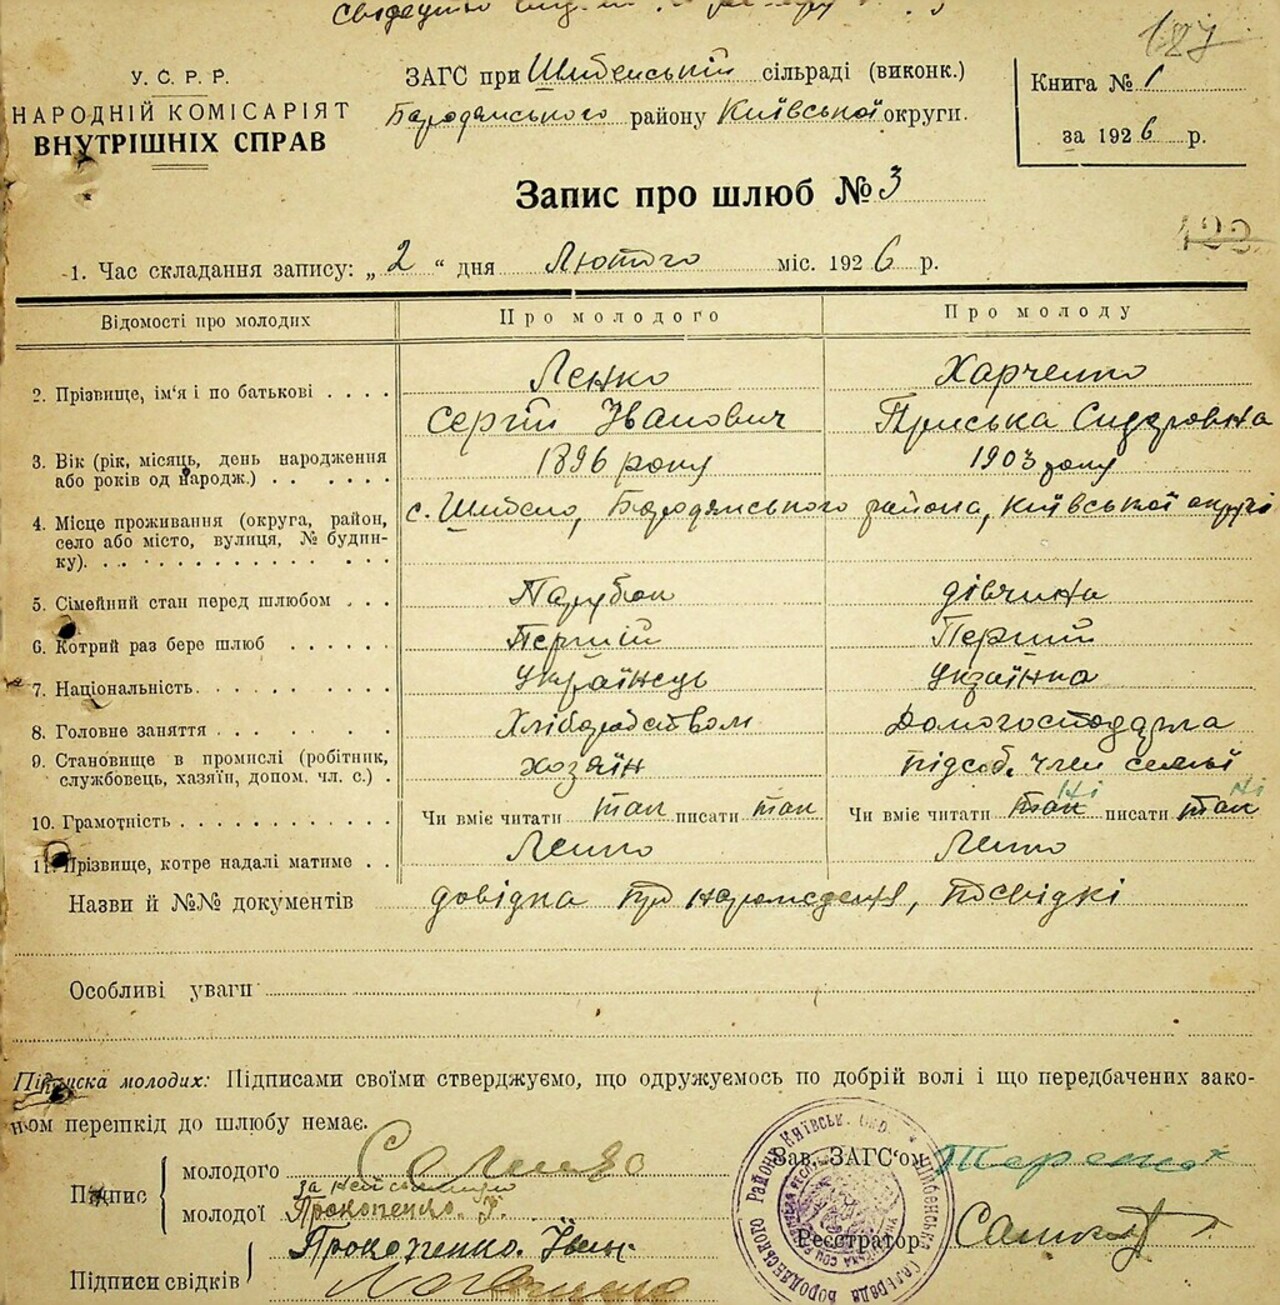 187
У. С. Р. Р.
НАРОДНІЙ КОМІСАРІЯТ
ВНУТРІШНІХ СПРАВ
ЗАГС при Шибенській сільраді (виконк.)
Бородянського району Київської округи.
Книга № 1
за 1926 р.
Запис про шлюб № 3
422
1. Час складання запису: „2“ дня Лютого міс. 1926 р.
Відомості про молодих Про молодого Про молоду
2. Прізвище, ім‘я і по батькові . . . . Ленко Харченко
Сергій Іванович Приська Сидоровна
3. Вік (рік, місяць, день народження 1896 року 1903 року
або років од народж.) . . . . . .
4. Місце проживання (округа, район, с. Шибено, Бородянського района, Київської округі
село або місто, вулиця, № будин-
ку). . . . . . . . . . . . . . .
5. Сімейний стан перед шлюбом . . . Парубок дівчина
6. Котрий раз бере шлюб . . . . . . Первий Первий
7. Національність. . . . . . . . . . Українець Українка
8. Головне заняття . . . . . . . . Хліборобством Домогосподарка
9. Становище в промислі (робітник, хозяїн підсоб. член семьї
службовець, хазяїн, допом. чл. с.) .
ні ні
10. Грамотність . . . . . . . . . . . Чи вміє читати так писати так Чи вміє читати так писати так
11. Прізвище, котре надалі матиме . . Ленко Ленко
Назви й №№ документів довідка про народження, посвідкі
Особливі уваги
Підписка молодих: Підписами своїми стверджуємо, що одружуємось по добрій волі і що передбачених зако-
ном перешкід до шлюбу немає.
Підпис
молодого С Ленко
за неписьменну
молодої Прокопенко. І.
Прокопенко. Іван
Підписи свідків
Зав. ЗАГС‘ом
Реєстратор